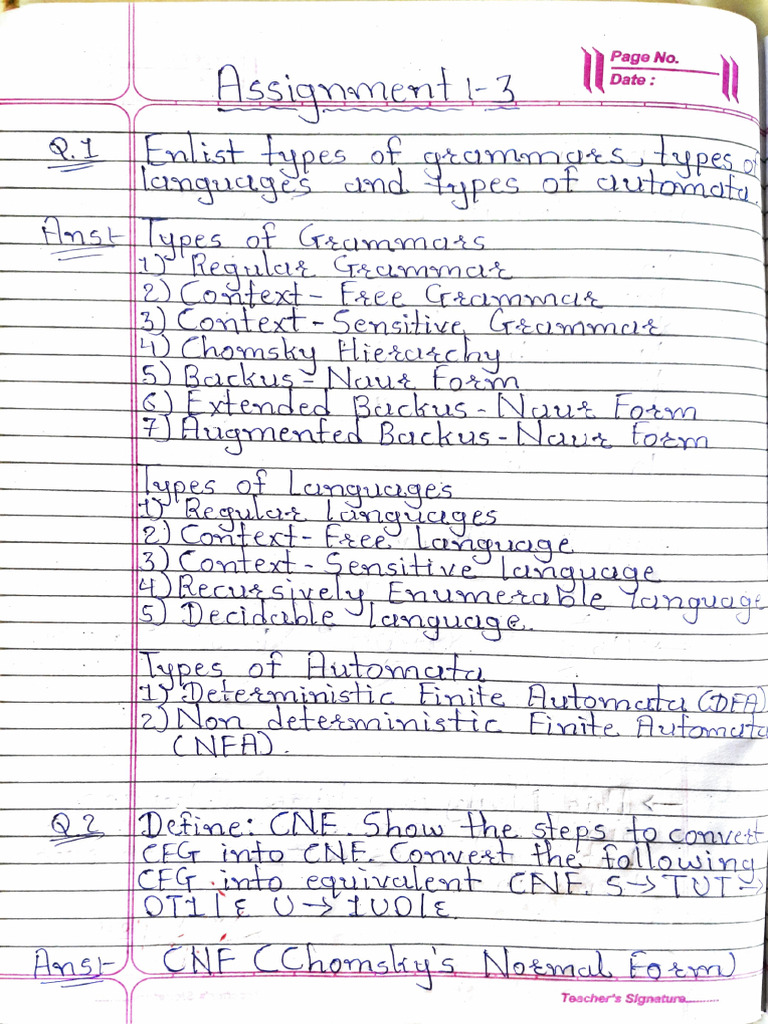 Page No.
Date :
Assignment 1-3
Q.1 Enlist types of grammars, types of
languages and types of automata.
Ans:- Types of Grammars
1) Regular Grammar
2) Context-Free Grammar
3) Context-Sensitive Grammar
4) Chomsky Hierarchy
5) Backus-Naur Form
6) Extended Backus-Naur Form
7) Augmented Backus-Naur form
Types of Languages
1) Regular Languages
2) Context-Free Language
3) Context-Sensitive Language
4) Recursively Enumerable language
5) Decidable Language.
Types of Automata
1) Deterministic Finite Automata (DFA)
2) Non deterministic Finite Automata
(NFA).
Q.2 Define: CNF. Show the steps to convert
CFG into CNF. Convert the following
CFG into equivalent CNF. S→TUT→
0T1|ε U→1U0|ε.
Ans:- CNF (Chomsky's Normal Form)
Teacher's Signature.........